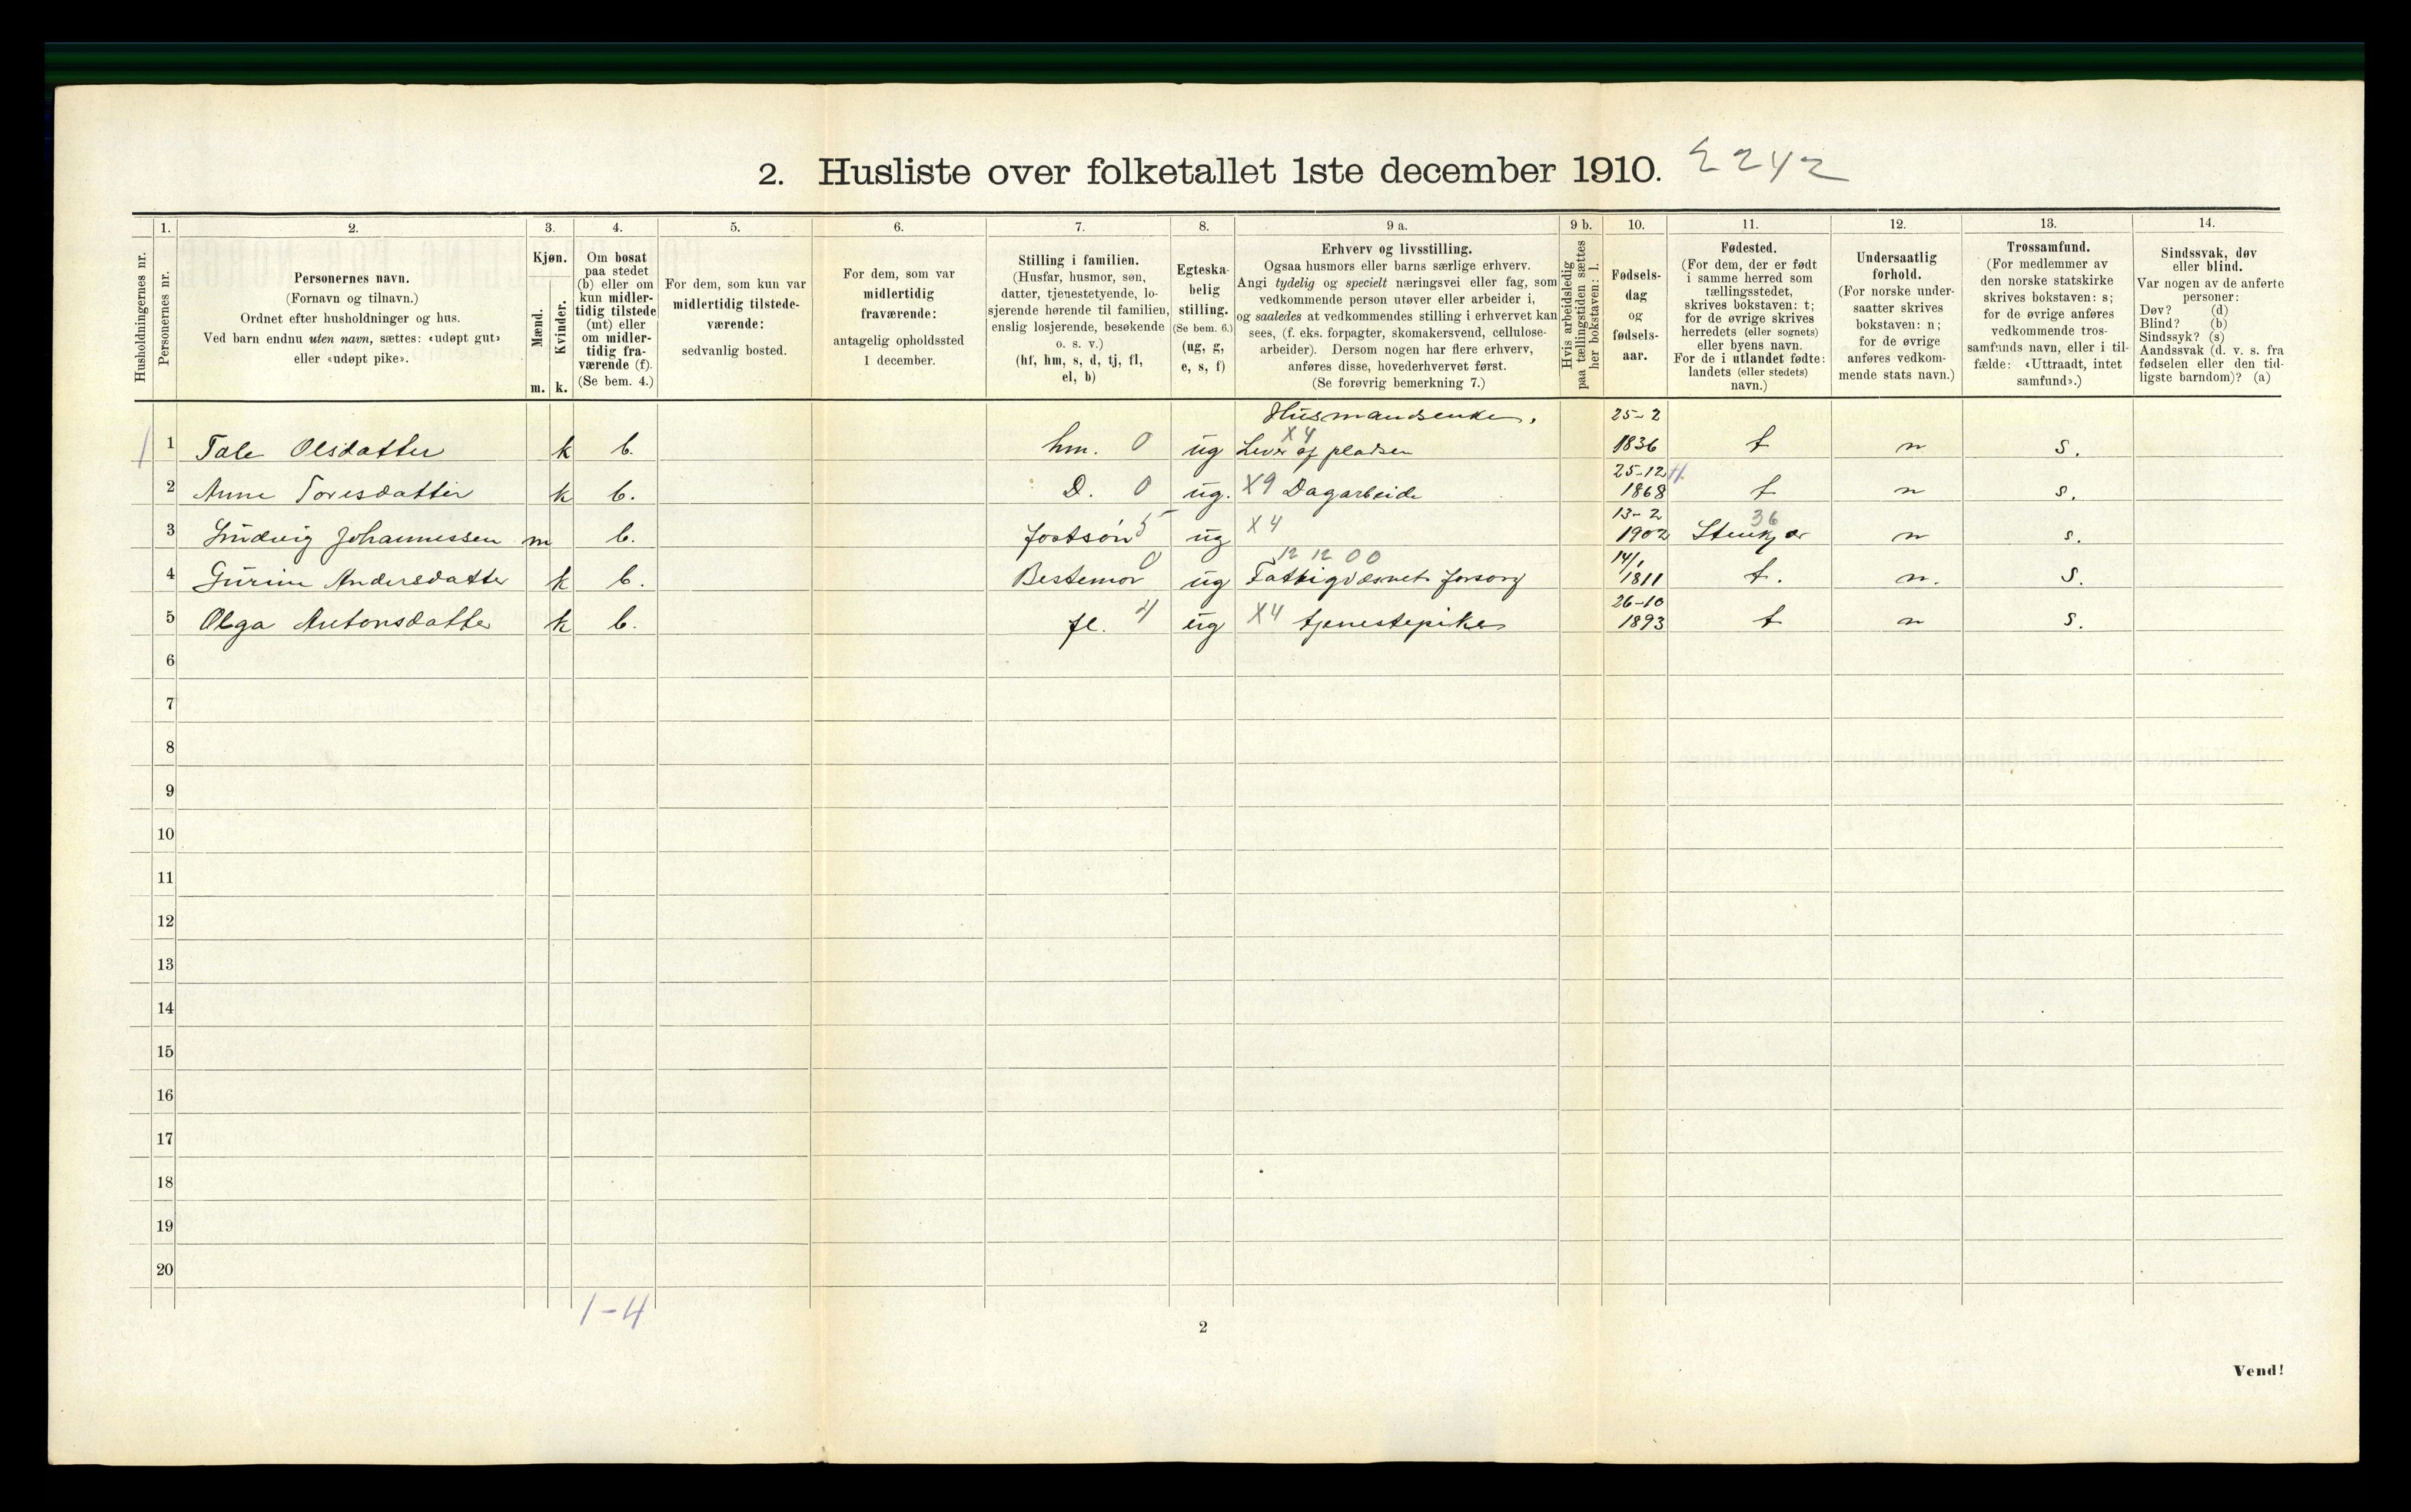 2. Husliste over folketallet 1ste december 1910. 2242
1. 2. 3. 4. 5. 6. 7. 8. 9 a. 9 b. 10. 11. 12. 13. 14.
Husholdningernes nr.
Personernes nr.
Personernes navn.
(Fornavn og tilnavn.)
Ordnet efter husholdninger og hus.
Ved barn endnu uten navn, sættes: «udøpt gut»
eller «udøpt pike».
Kjøn.
Mænd.
Kvinder.
m. k.
Om bosat
paa stedet
(b) eller om
kun midler-
tidig tilstede
(mt) eller
om midler-
tidig fra-
værende (f).
(Se bem. 4.)
For dem, som kun var
midlertidig tilstede-
værende:
sedvanlig bosted.
For dem, som var
midlertidig
fraværende:
antagelig opholdssted
1 december.
Stilling i familien.
(Husfar, husmor, søn,
datter, tjenestetyende, lo-
sjerende hørende til familien,
enslig losjerende, besøkende
o. s. v.)
(hf, hm, s, d, tj, fl,
el, b)
Egteska-
belig
stilling.
(Se bem. 6.)
(ug, g,
e, s, f)
Erhverv og livsstilling.
Ogsaa husmors eller barns særlige erhverv.
Angi tydelig og specielt næringsvei eller fag, som
vedkommende person utøver eller arbeider i,
og saaledes at vedkommendes stilling i erhvervet kan
sees, (f. eks. forpagter, skomakersvend, cellulose-
arbeider). Dersom nogen har flere erhverv,
anføres disse, hovederhvervet først.
(Se forøvrig bemerkning 7.)
Hvis arbeidsledig
paa tællingstiden sættes
her bokstaven: l.
Fødsels-
dag
og
fødsels-
aar.
Fødested.
(For dem, der er født
i samme herred som
tællingsstedet,
skrives bokstaven: t;
for de øvrige skrives
herredets (eller sognets)
eller byens navn.
For de i utlandet fødte:
landets (eller stedets)
navn.)
Undersaatlig
forhold.
(For norske under-
saatter skrives
bokstaven: n;
for de øvrige
anføres vedkom-
mende stats navn.)
Trossamfund.
(For medlemmer av
den norske statskirke
skrives bokstaven: s;
for de øvrige anføres
vedkommende tros-
samfunds navn, eller i til-
fælde: «Uttraadt, intet
samfund».)
Sindssvak, døv
eller blind.
Var nogen av de anførte
personer:
Døv? (d)
Blind? (b)
Sindssyk? (s)
Aandssvak (d. v. s. fra
fødselen eller den tid-
ligste barndom)? (a)
Husmandsenke. 25-2
1 1 Tale Olsdatter k b. hm. 0 ug X4 Lever af pladsen 1836 t n s.
25-12
2 Anne Toresdatter k b. D. 0 ug. X9 Dagarbeide 1868 t n s.
13-2 36
3 Ludvig Johannessen m b. Fostsøn 5 ug X4 1902 Stenkjær n s.
0 12 12 0 0 14/1
4 Gurine Andersdatter k b. Bestemor ug Fattigvæsnets forsorg 1811 t. n. s.
26-10
5 Olga Antonsdatter k b. fl. 4 ug X4 tjenestepike 1893 t n s.
6
7
8
9
10
11
12
13
14
15
16
17
18
19
20
1-4
2
Vend!